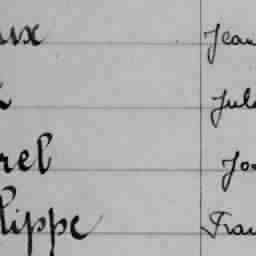 ux Jean
Jule
rel Jo
lippe Fran